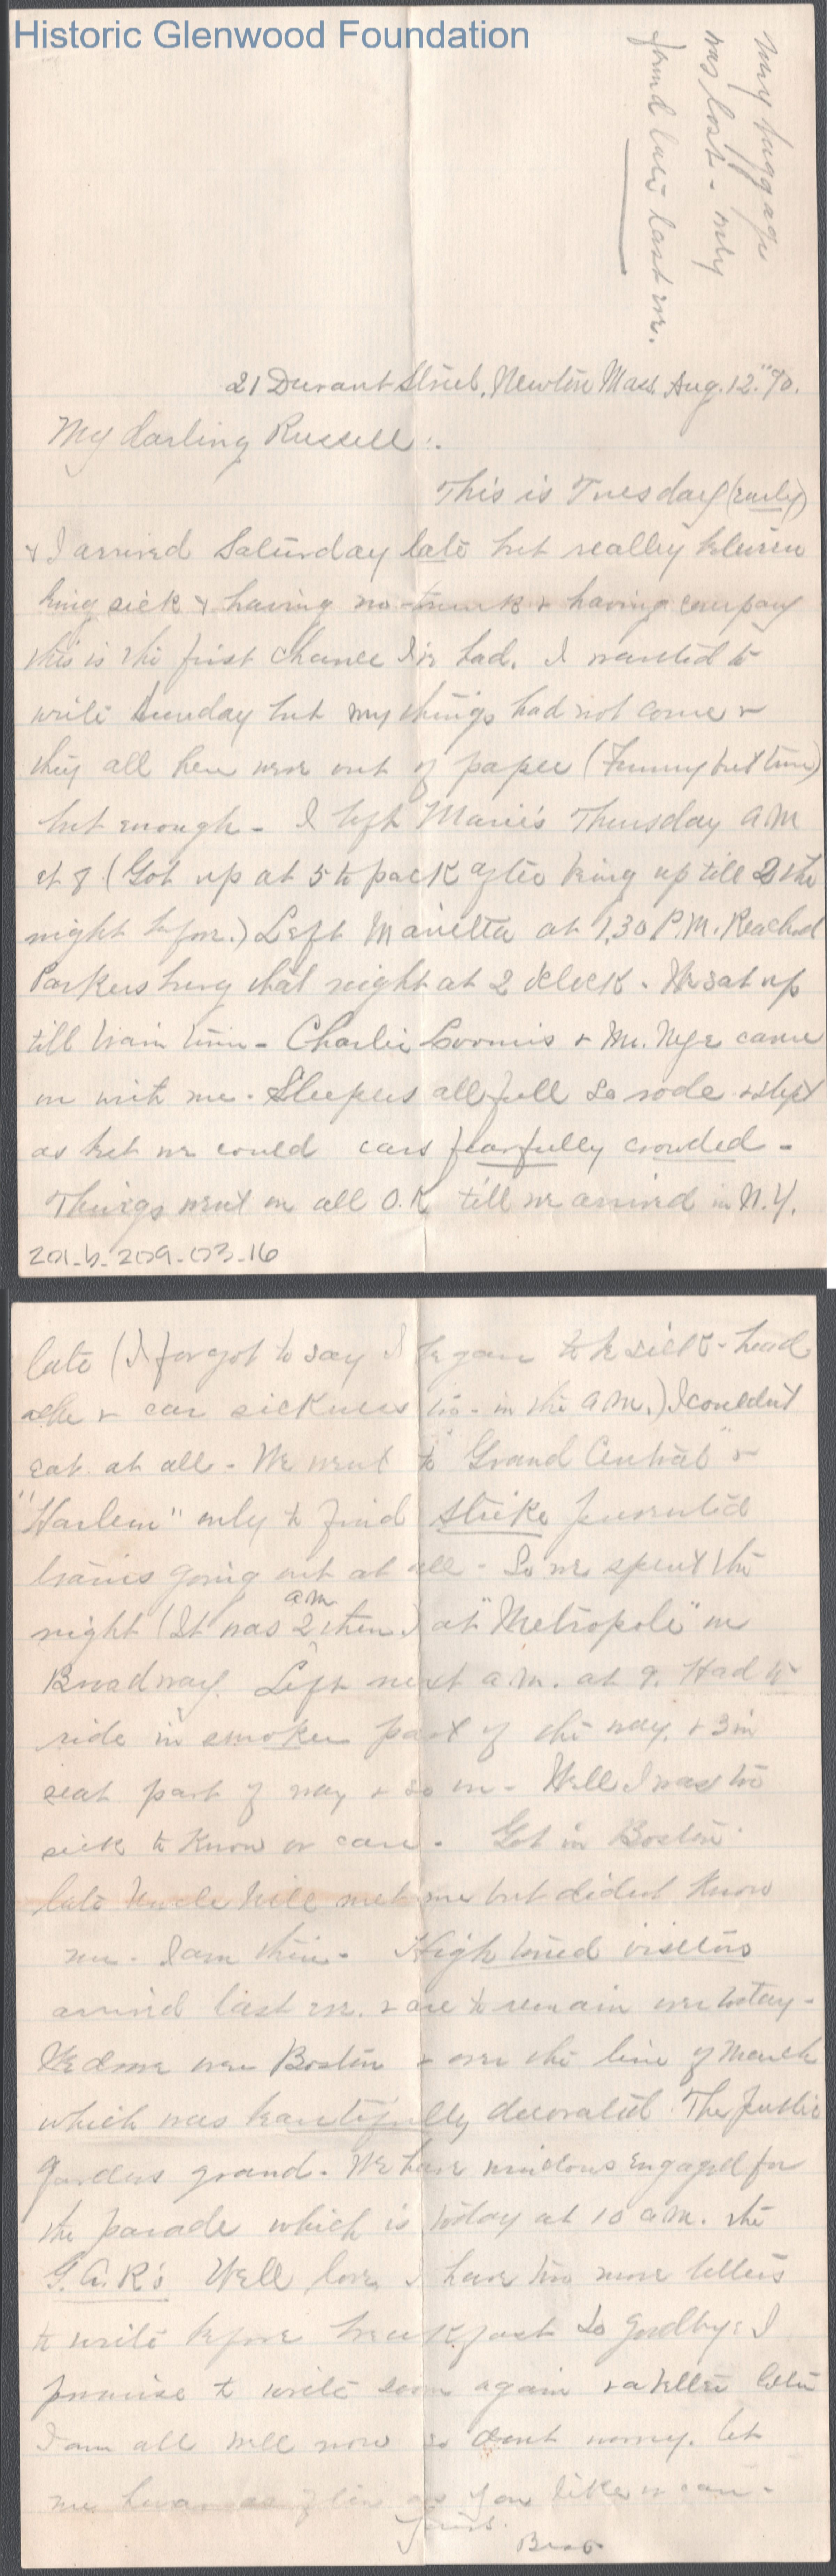 Historic Glenwood Foundation
My luggage
was lost - only
found late last eve.
21 Durant Street, Newton Mass. Aug. 12."90.
My darling Russell:.
This is Tuesday (early)
& I arrived Saturday late but really between
being sick & having no trunk & having company
this is the first chance I've had. I wanted to
write Sunday but my things had not come &
they all here were out of paper (Funny but true)
but enough - I left Marie's Thursday A M
at 8 (Got up at 5 to pack after being up till 2 the
night before.) Left Marietta at 7,30 P.M. Reached
Parkersburg that night at 2 oclock. We sat up
till train time - Charlie Loomis & Mr. Nye came
on with me. Sleepers all full so rode & slept
as best we could cars fearfully crowded -
Things went on all O.K till we arrived in N.Y.
201-b-209-03-16
late (I forgot to say I began to be sick - head
ache & car sickness too - in the a m.) I couldn't
eat at all - We went to "Grand Central" &
"Harlem" only to find strike prevented
trains going out at all - So we spent the
a m
night (It was 2 then) at "Metropole" on
Broadway. Left next a m. at 9. Had to
ride in smoker part of the way, & 3 in
seat part of way & so on - Well I was too
sick to know or care. Got in Boston
late Uncle Will met me but didnt know
me - I am thin - High toned visitors
arrived last eve. & are to remain over today -
We drove over Boston & over the line of March
which was beautifully decorated. The Public
Gardens grand. We have windows engaged for
the parade which is today at 10 a m. the
G.A.R's Well love, I have two more letters
to write before breakfast so goodbye I
promise to write soon again & a better letter
I am all well now so dont worry. Let
me hear as often as you like or can -
Yours.